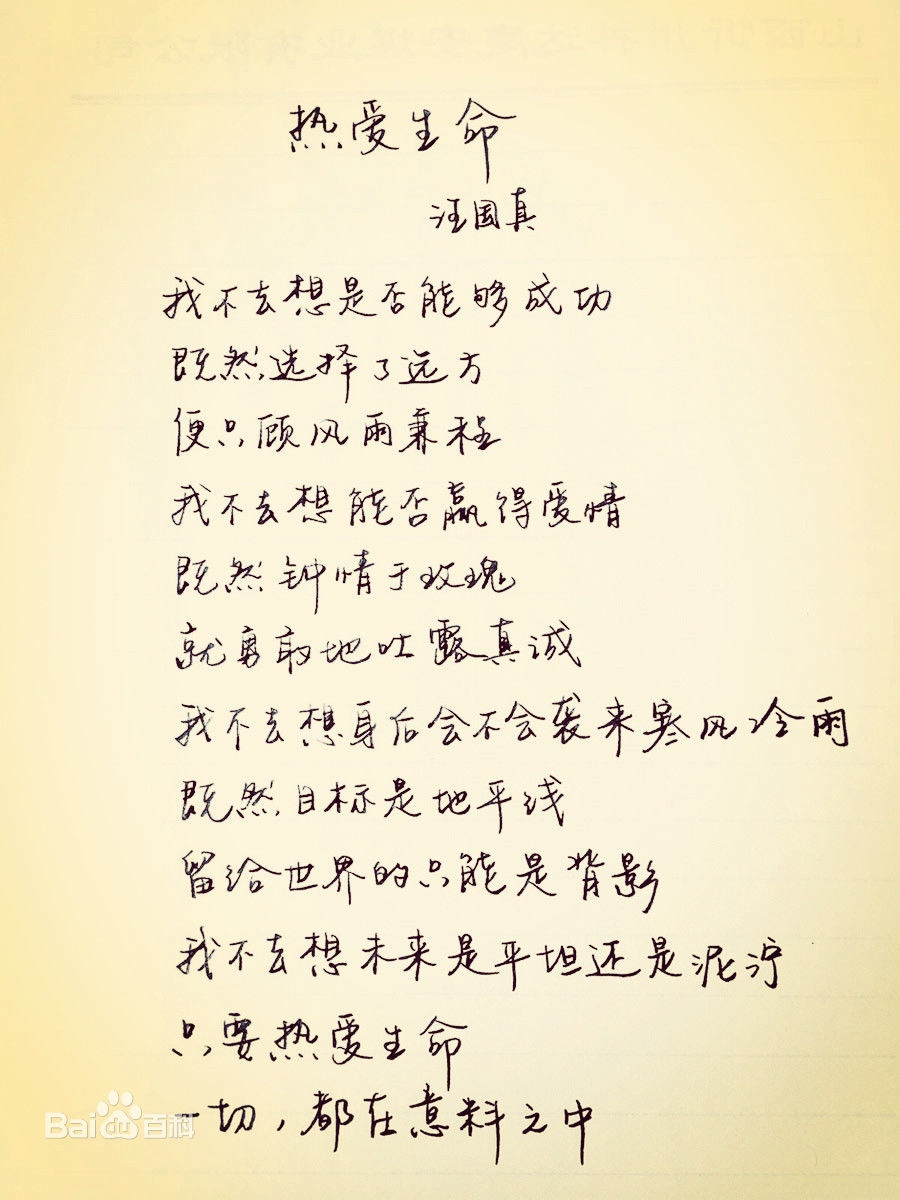 热爱生命
汪国真
我不去想是否能够成功
既然选择了远方
便只顾风雨兼程
我不去想能否赢得爱情
既然钟情于玫瑰
就勇敢地吐露真诚
我不去想身后会不会袭来寒风冷雨
既然目标是地平线
留给世界的只能是背影
我不去想未来是平坦还是泥泞
只要热爱生命
一切，都在意料之中
Bai百科